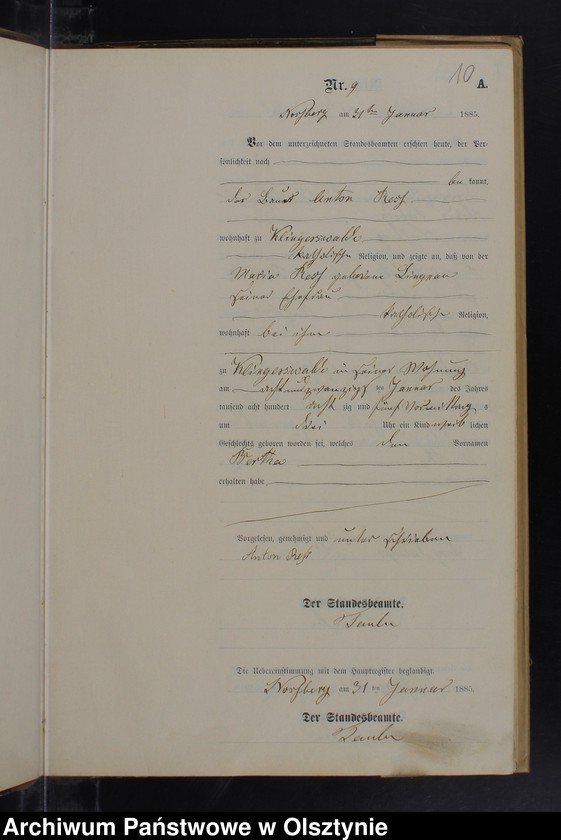 10
Nr. 9 A.
am 31ten Januar 1885.
Vor dem unterzeichneten Standesbeamten erschien heute, der Per-
sönlichkeit nach
be kannt,
der Bauer Anton
wohnhaft zu Klingerswalde
katholischer Religion, und zeigte an, daß von der
Maria geborene
seiner Ehefrau
katholischer Religion,
wohnhaft bei ihm
zu Klingerswalde in seiner Wohnung
am achtundzwanzigsten Januar des Jahres
tausend acht hundert acht zig und fünf Vormittags
um drei Uhr ein Kind weib lichen
Geschlechts geboren worden sei, welches den Vornamen
Bertha
erhalten habe
Vorgelesen, genehmigt und unterschrieben
Anton
Der Standesbeamte.
Die Uebereinstimmung mit dem Hauptregister beglaubigt
am 31ten Januar 1885.
Der Standesbeamte.
Archiwum Państwowe w Olsztynie